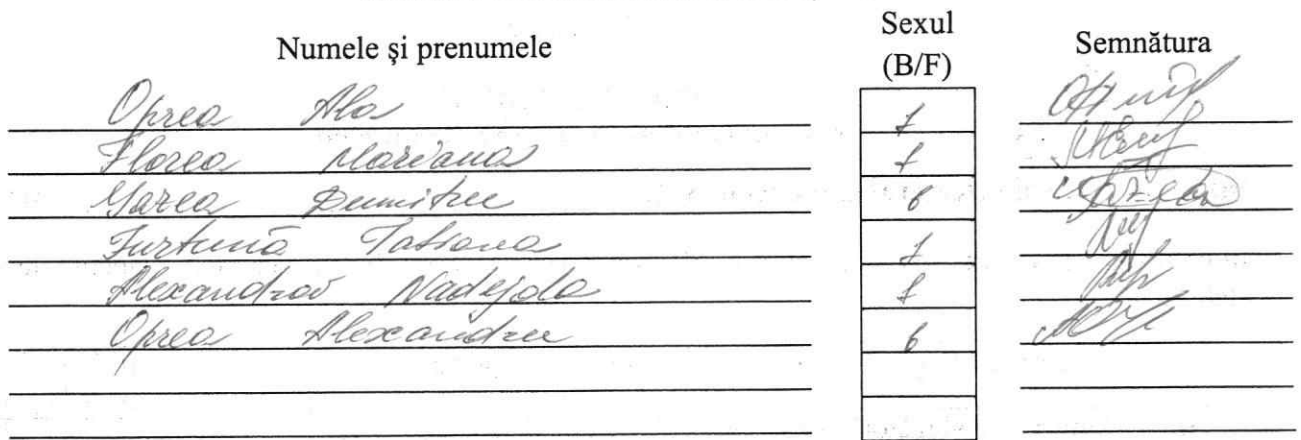 Numele și prenumele Sexul (B/F) Semnătura
Oprea Ala f
Florea Mariana f
Gazea Dumitru b
Furtună Tatiana f
Alexandrov Nadejda f
Oprea Alexandru b